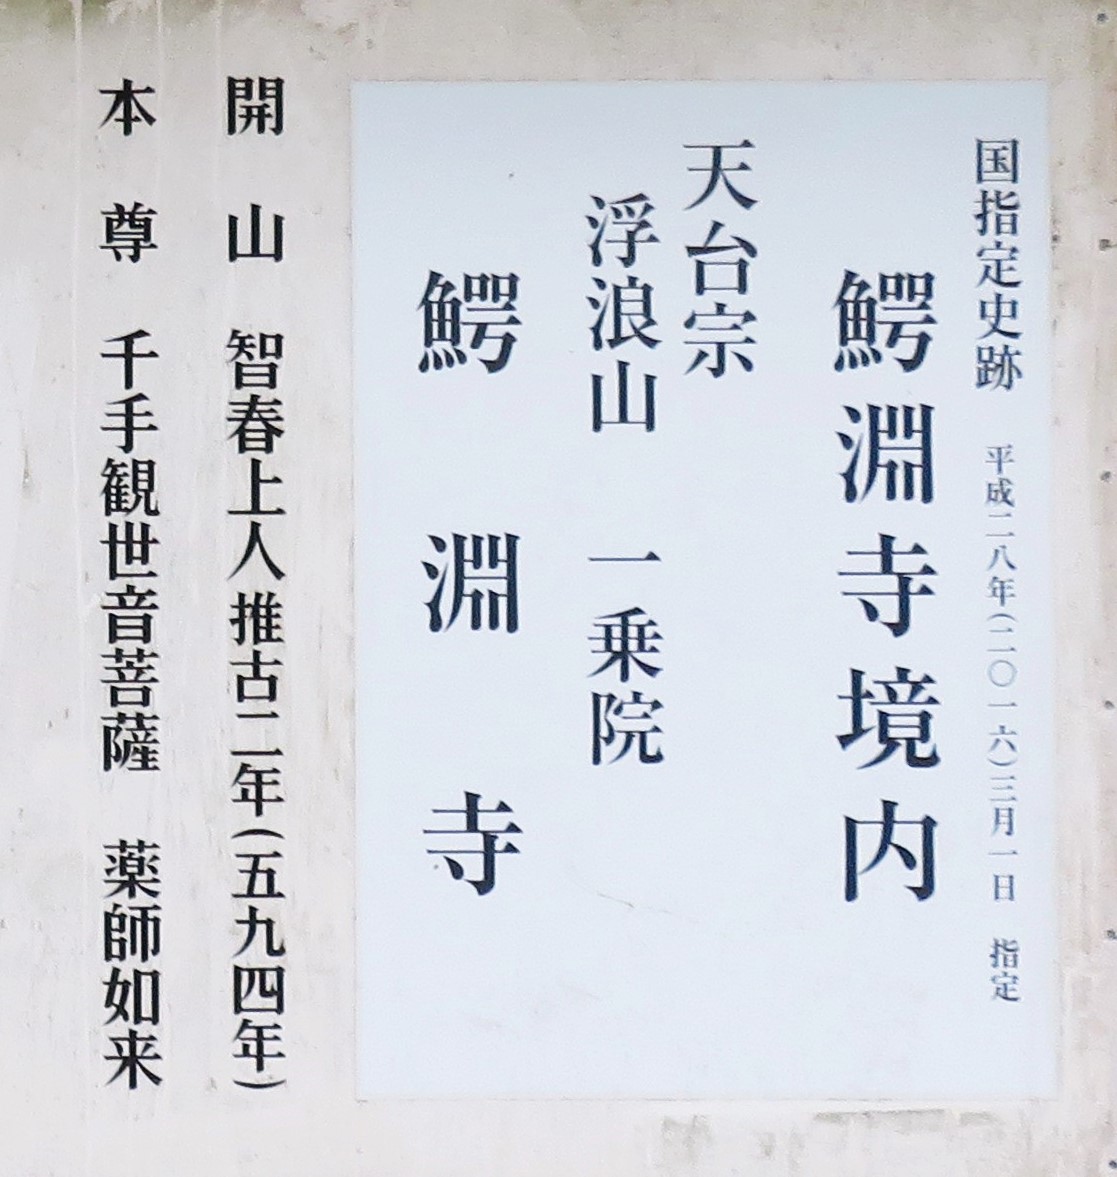 国指定史跡 平成二八年(二〇一六)三月一日 指定
鰐淵寺境内
天台宗
浮浪山 一乗院
鰐淵寺
開山 智春上人推古二年(五九四年)
本尊 千手観世音菩薩 薬師如来